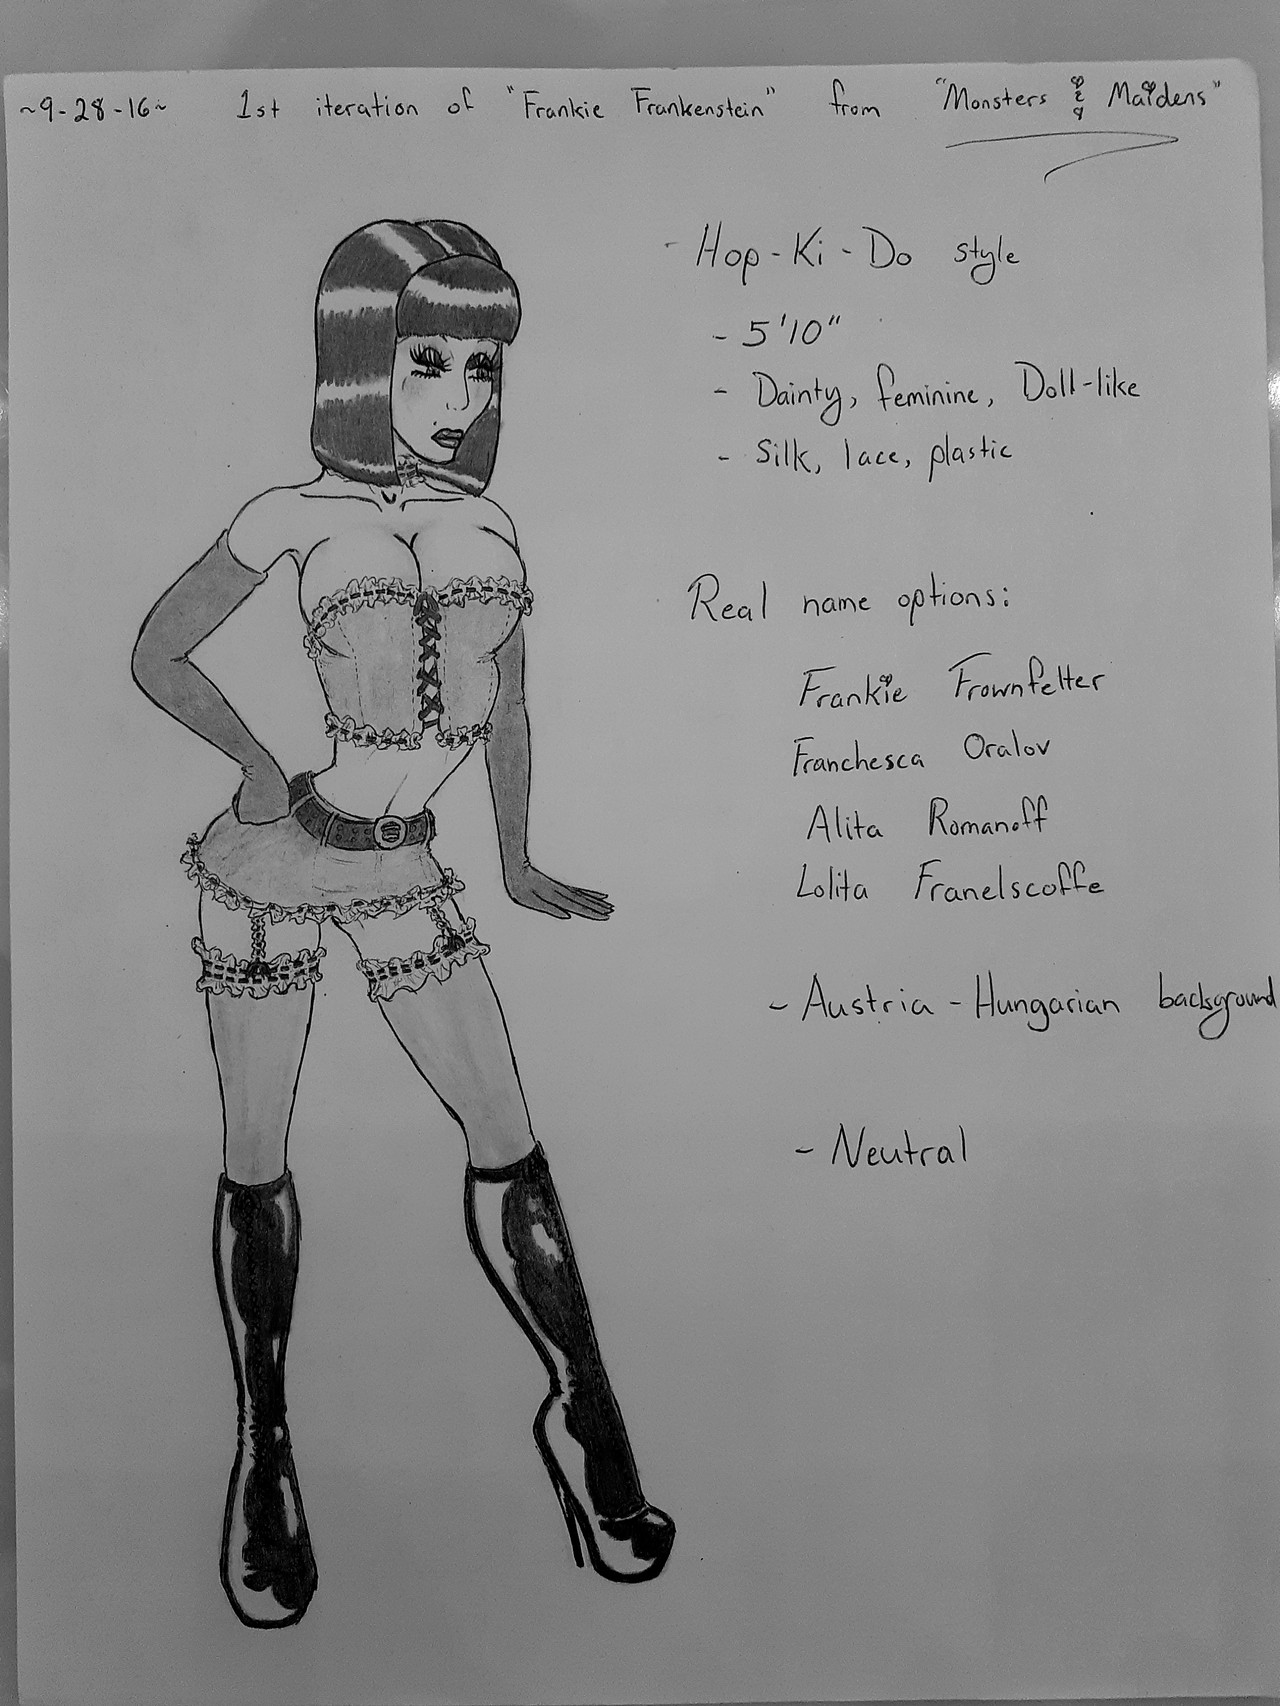 ~9-28-16~ 1st iteration of "Frankie Frankenstein" from "Monsters & Maidens"
- Hop-Ki-Do style
- 5'10"
- Dainty, feminine, Doll-like
- Silk, lace, plastic
Real name options:
Frankie Frownfelter
Franchesca Oralov
Alita Romanoff
Lolita Franelscoffe
- Austria-Hungarian background
- Neutral